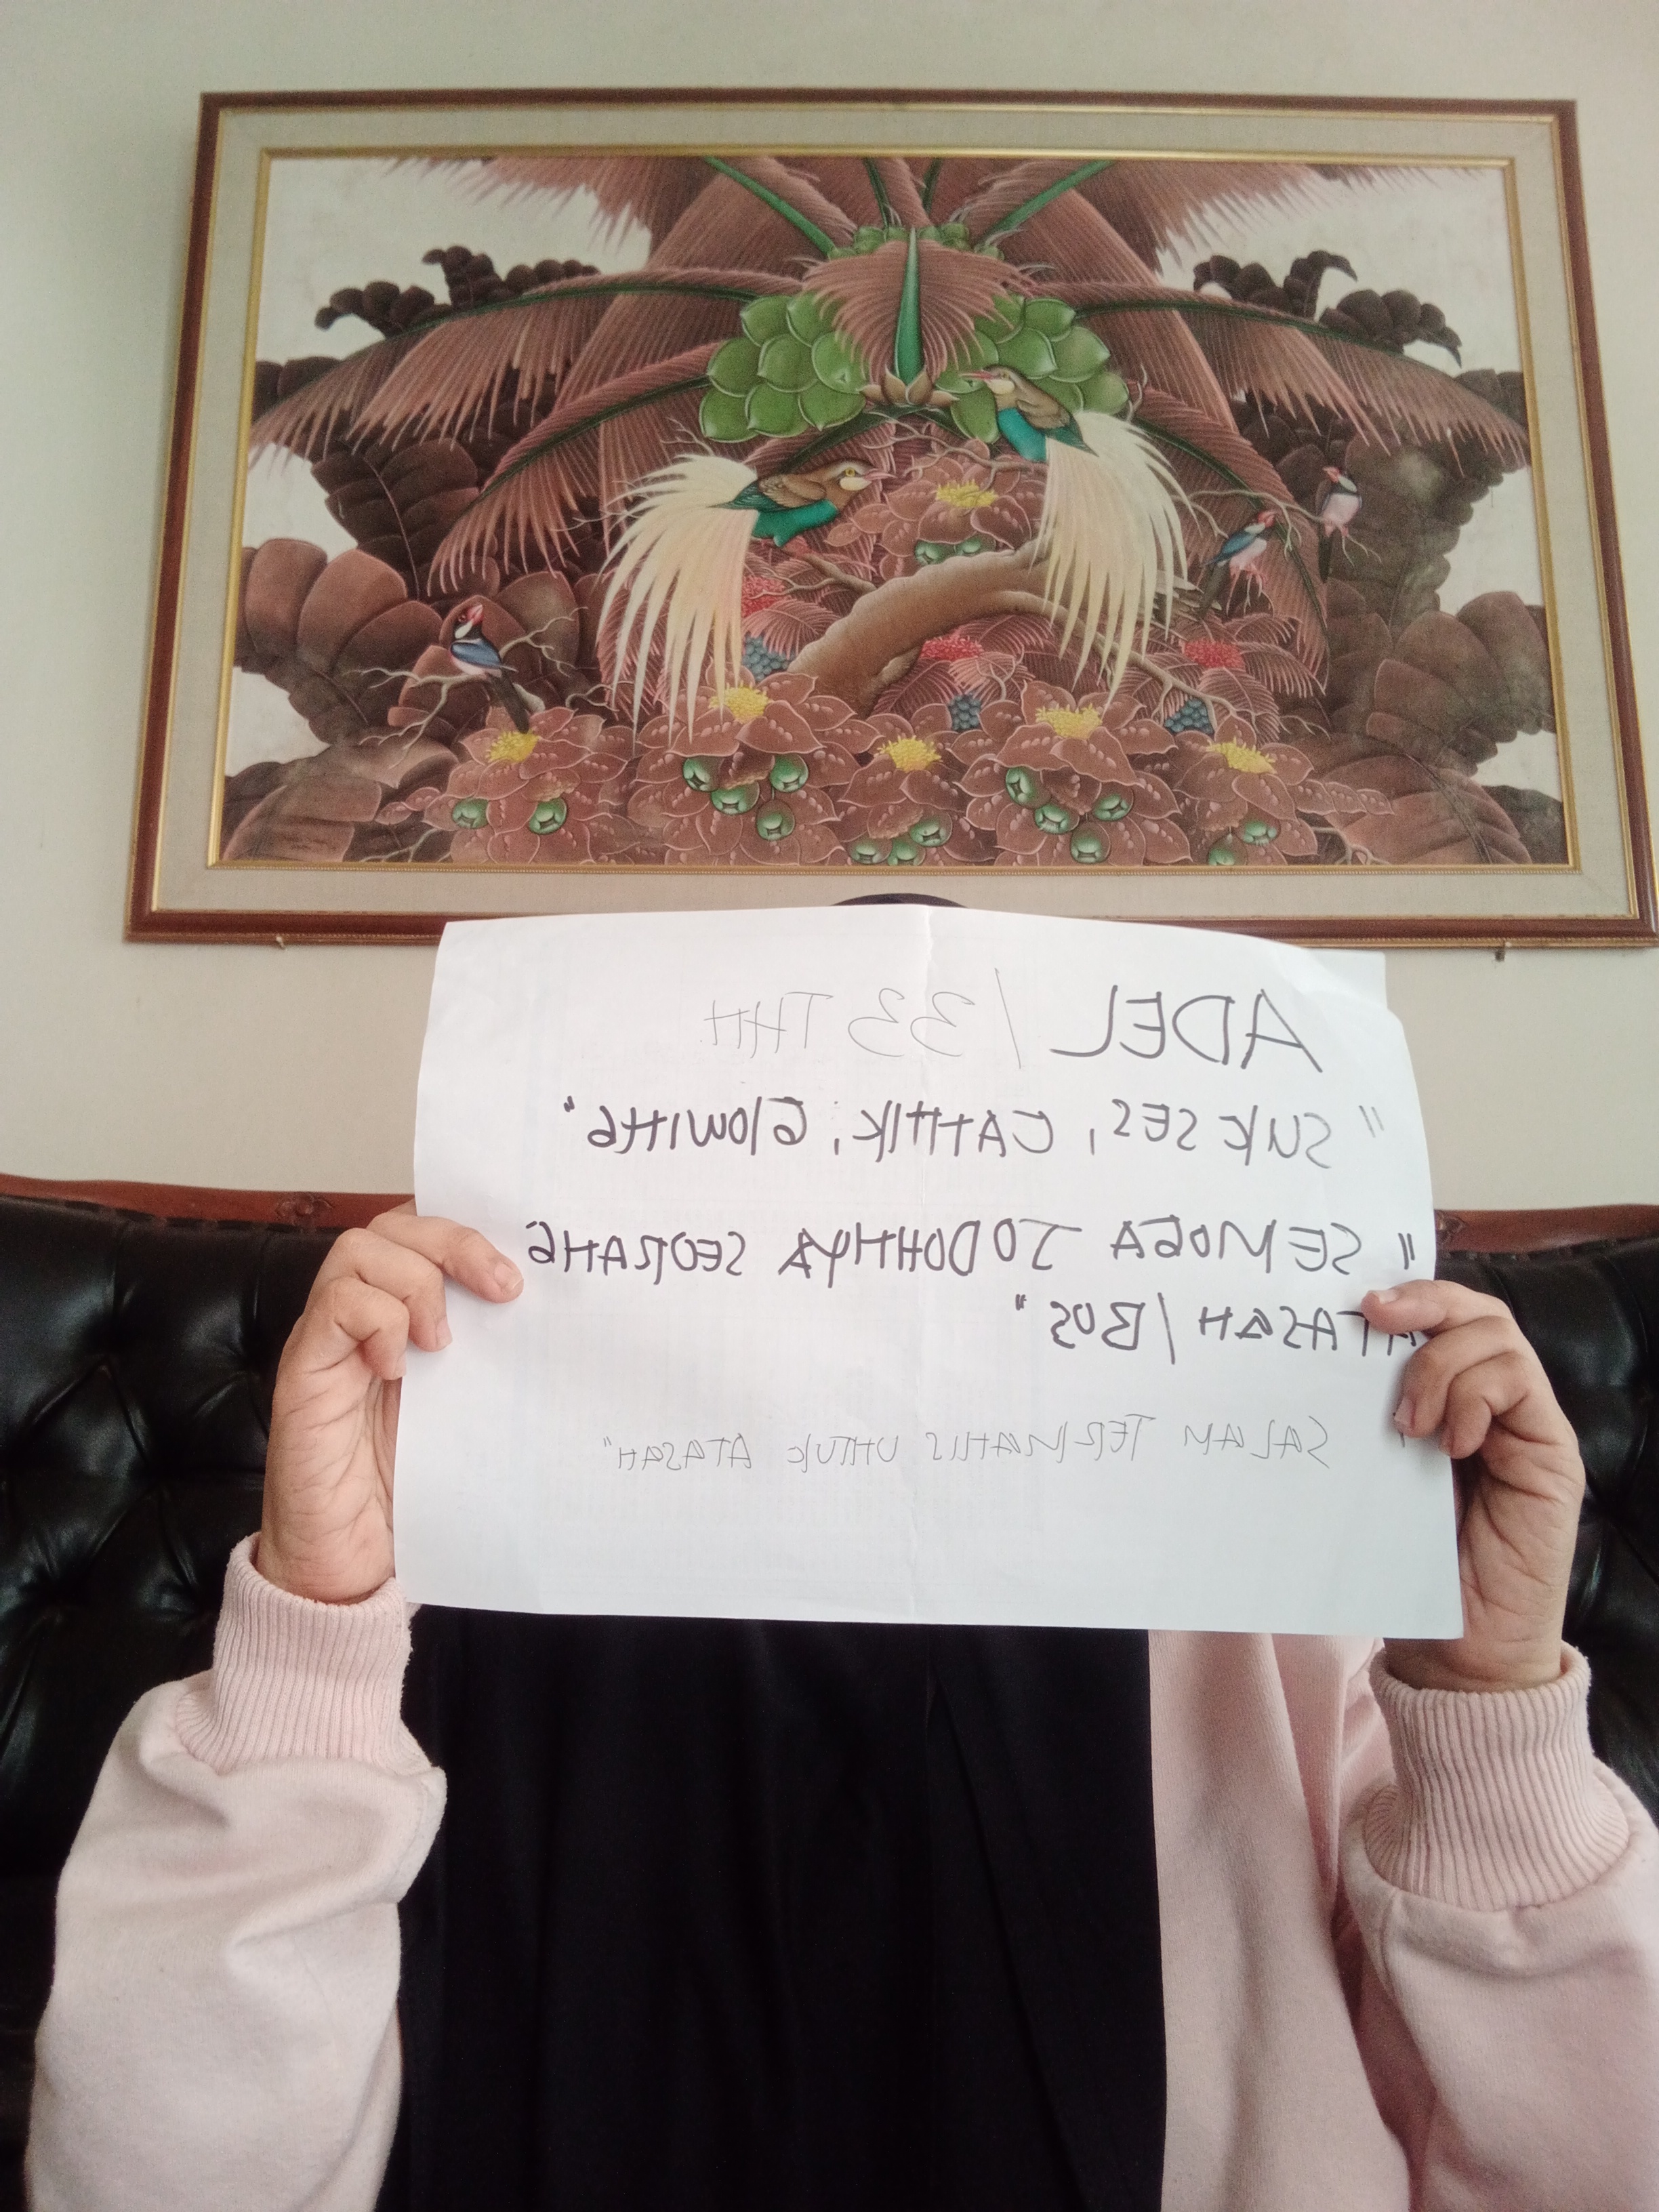 ADEL / 33 THN
"SUKSES, CANTIK, GLOWING"
"SEMOGA JODOHNYA SEORANG
ATASAN / BOS"
"SALAM TERMANIS UNTUK ATASAN"